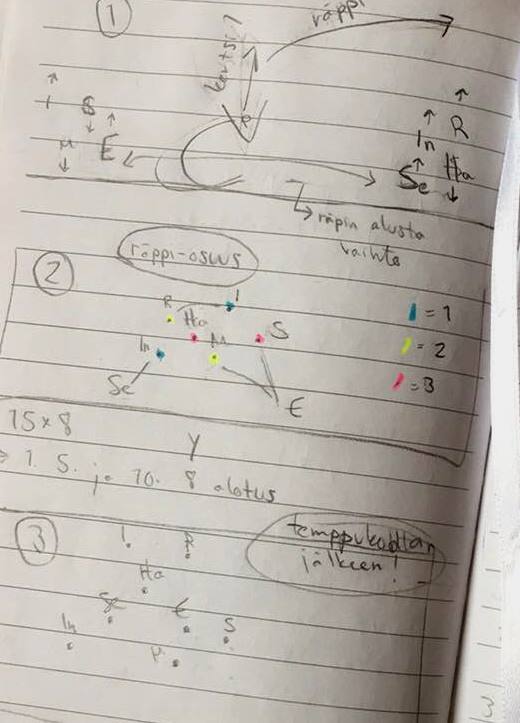 1
räppi
R
I S
In R
M E
Se Ha
räpin alusta
vaihto
räppi-osuus
2
R I
Ha
In M S
Se E
= 1
= 2
= 3
15 x 8
Y
1. 5. ja 10. 8 alotus
3
temppukohdan
jälkeen!
I R
Ha
Se E
In S
M